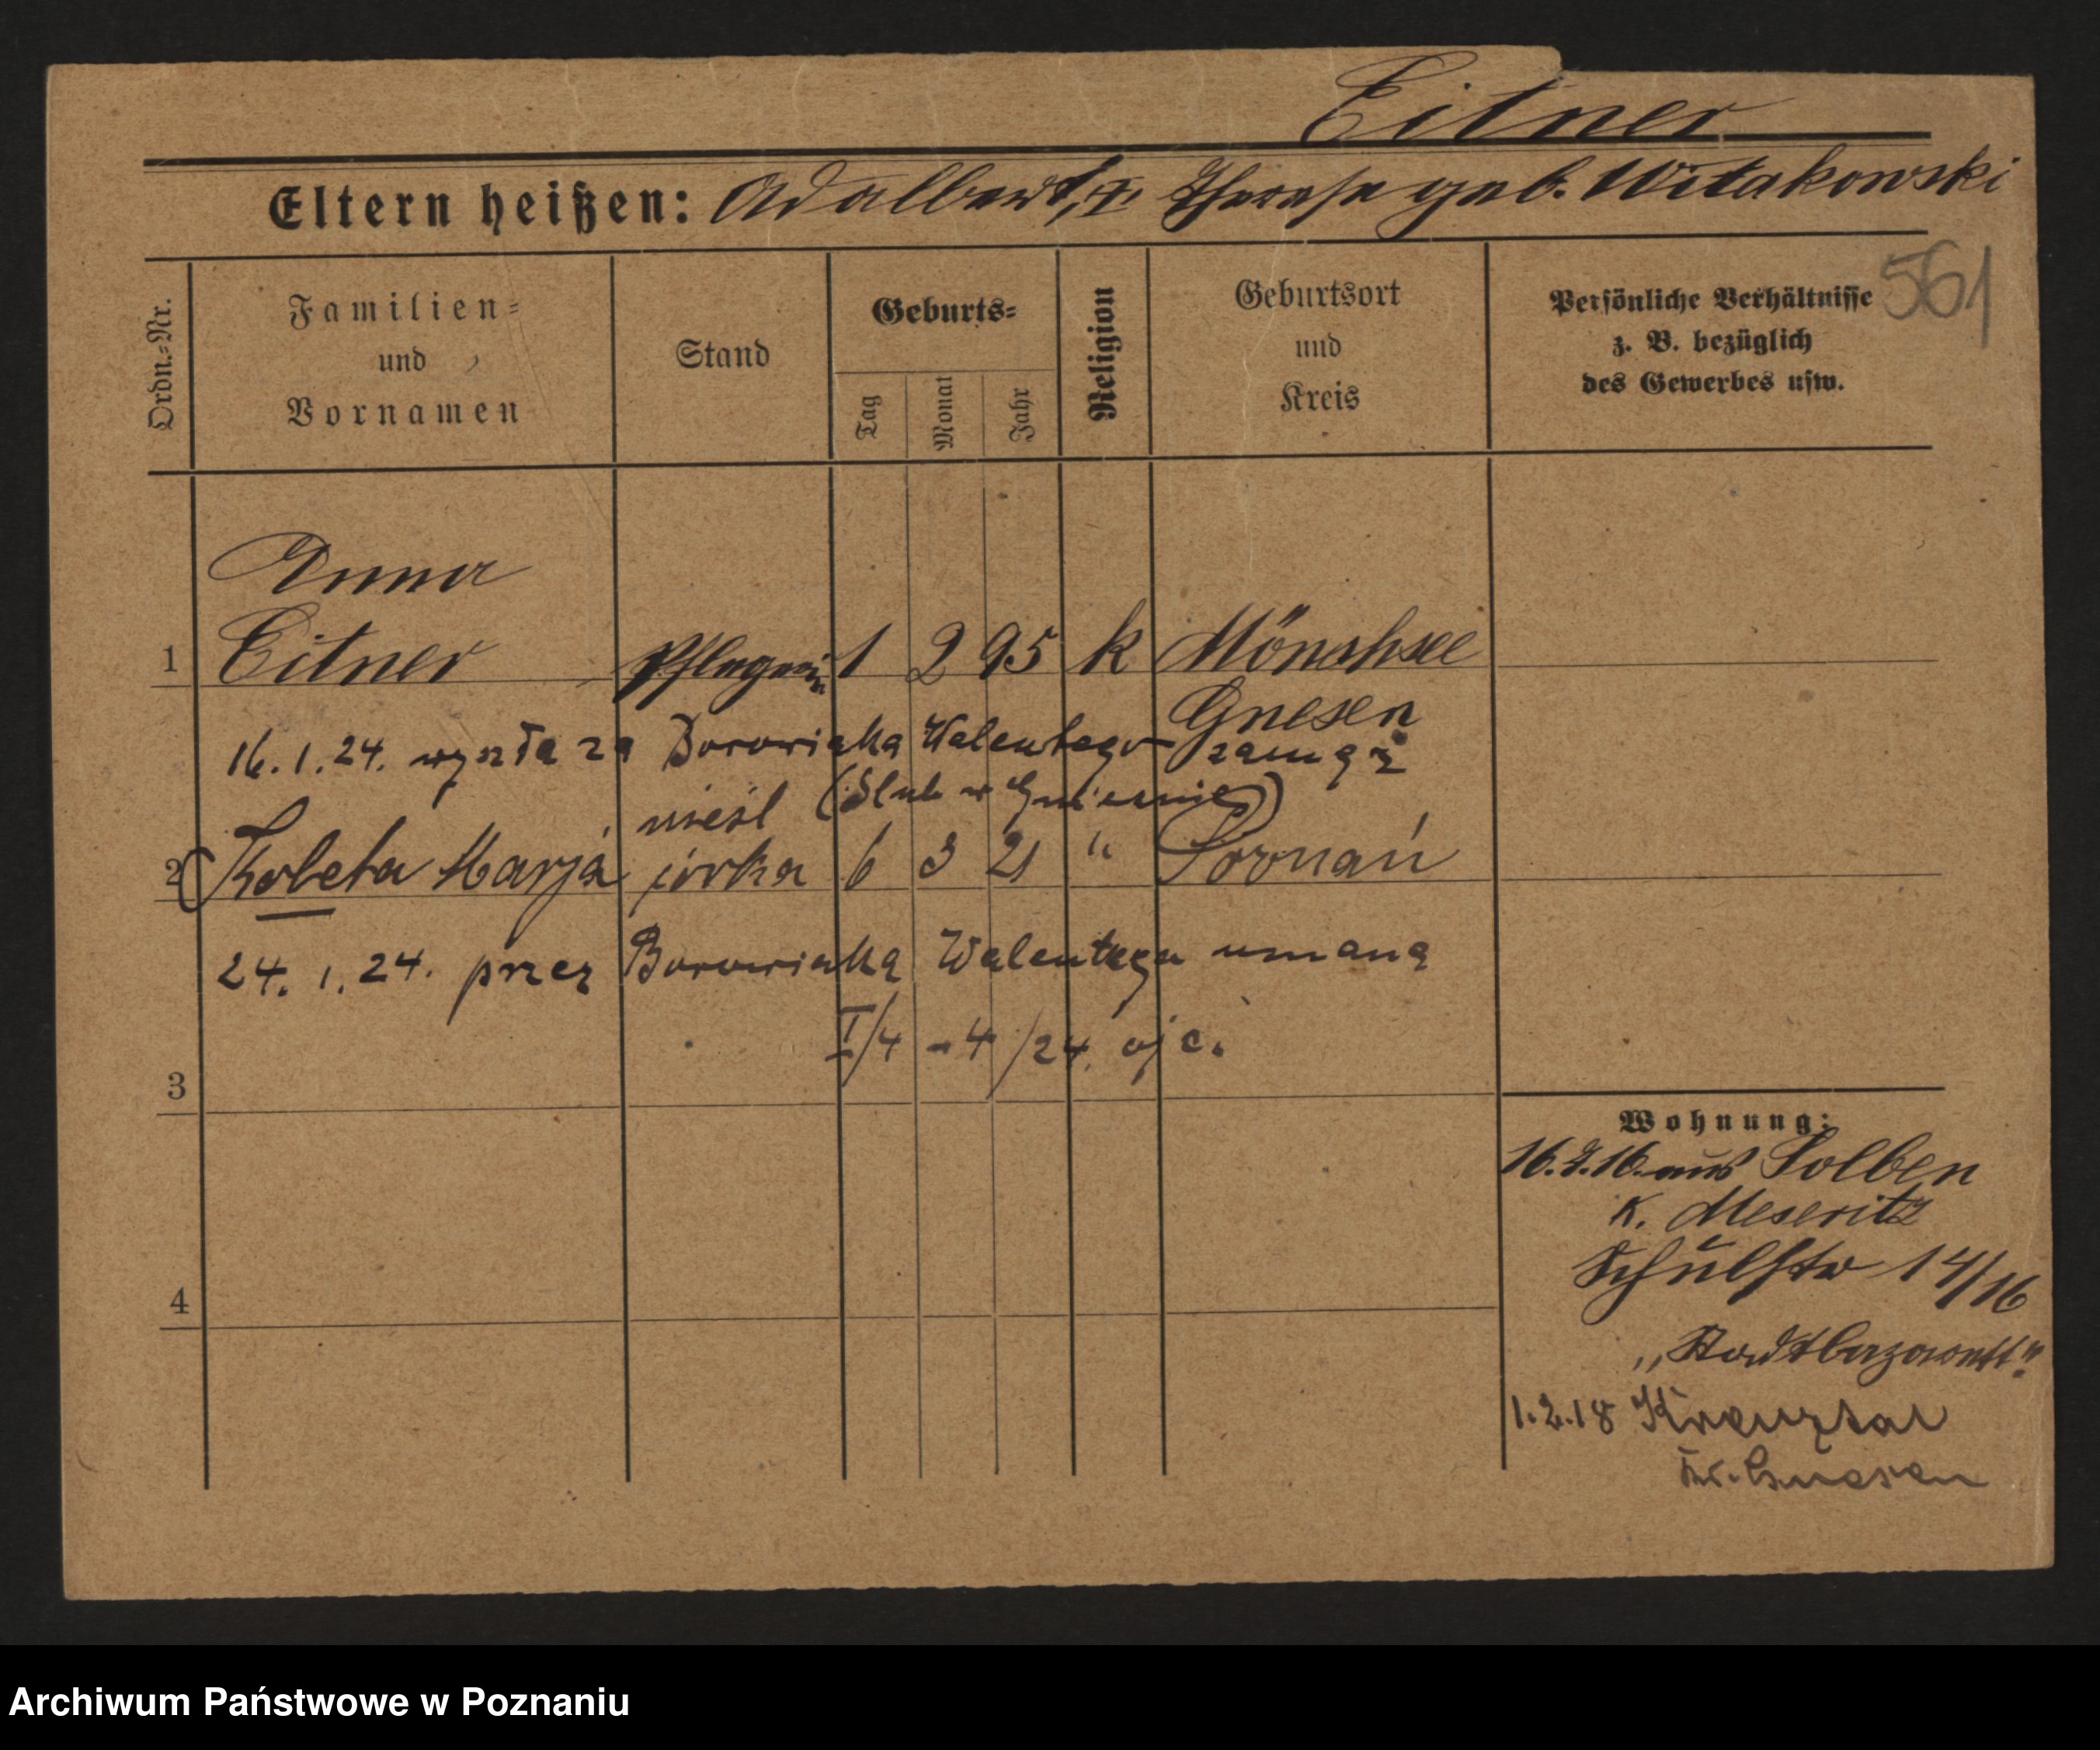 Eitner
Eltern heißen: Adalbert, u. Therese geb. Witakowski
561
Ordn.-Nr.
Familien-
und
Vornamen
Stand
Geburts-
Tag
Monat
Jahr
Religion
Geburtsort
und
Kreis
Persönliche Verhältnisse
z. B. bezüglich
des Gewerbes usw.
Anna
1 Eitner Pflegerin 1 2 95 k Mönchsee
Gnesen
16.1.24. wyszła za Borowiaka Walentego zamąż
(Slub w Gnieznie)
nieśl
2 Marja córka 6 3 21 " Poznań
24.1.24. przez Borowiaka Walentego uznana
I/4 - 4/24. ojc.
3
4
Wohnung:
16.7.16. aus Solben
K. Meseritz
Schulstr 14/16
„Stadtlazarett"
1.2.18 Kreuztal
Kr. Gnesen
Archiwum Państwowe w Poznaniu